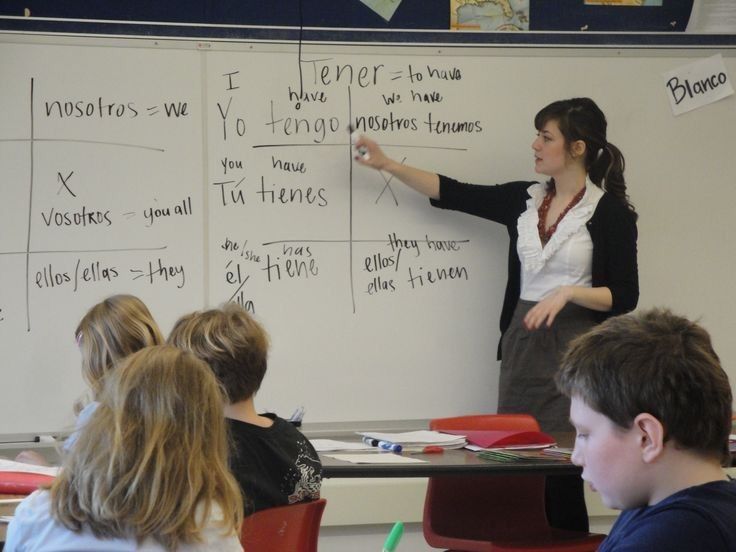 nosotros = we
X
vosotros = you all
ellos/ellas = they
Tener = to have
I have
Yo tengo
we have
nosotros tenemos
you have
Tú tienes
X
he/she has
él/ella tiene
they have
ellos/
ellas tienen
Blanco